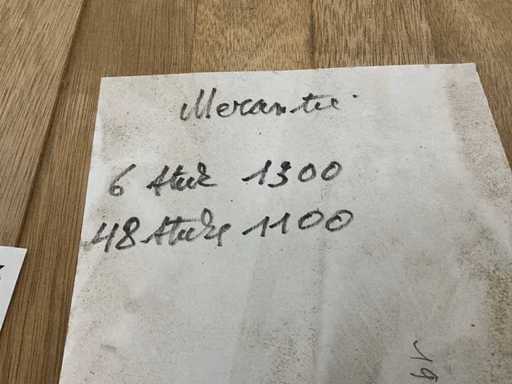 Merantie
6 Stuk 1300
48 Stuks 1100
19